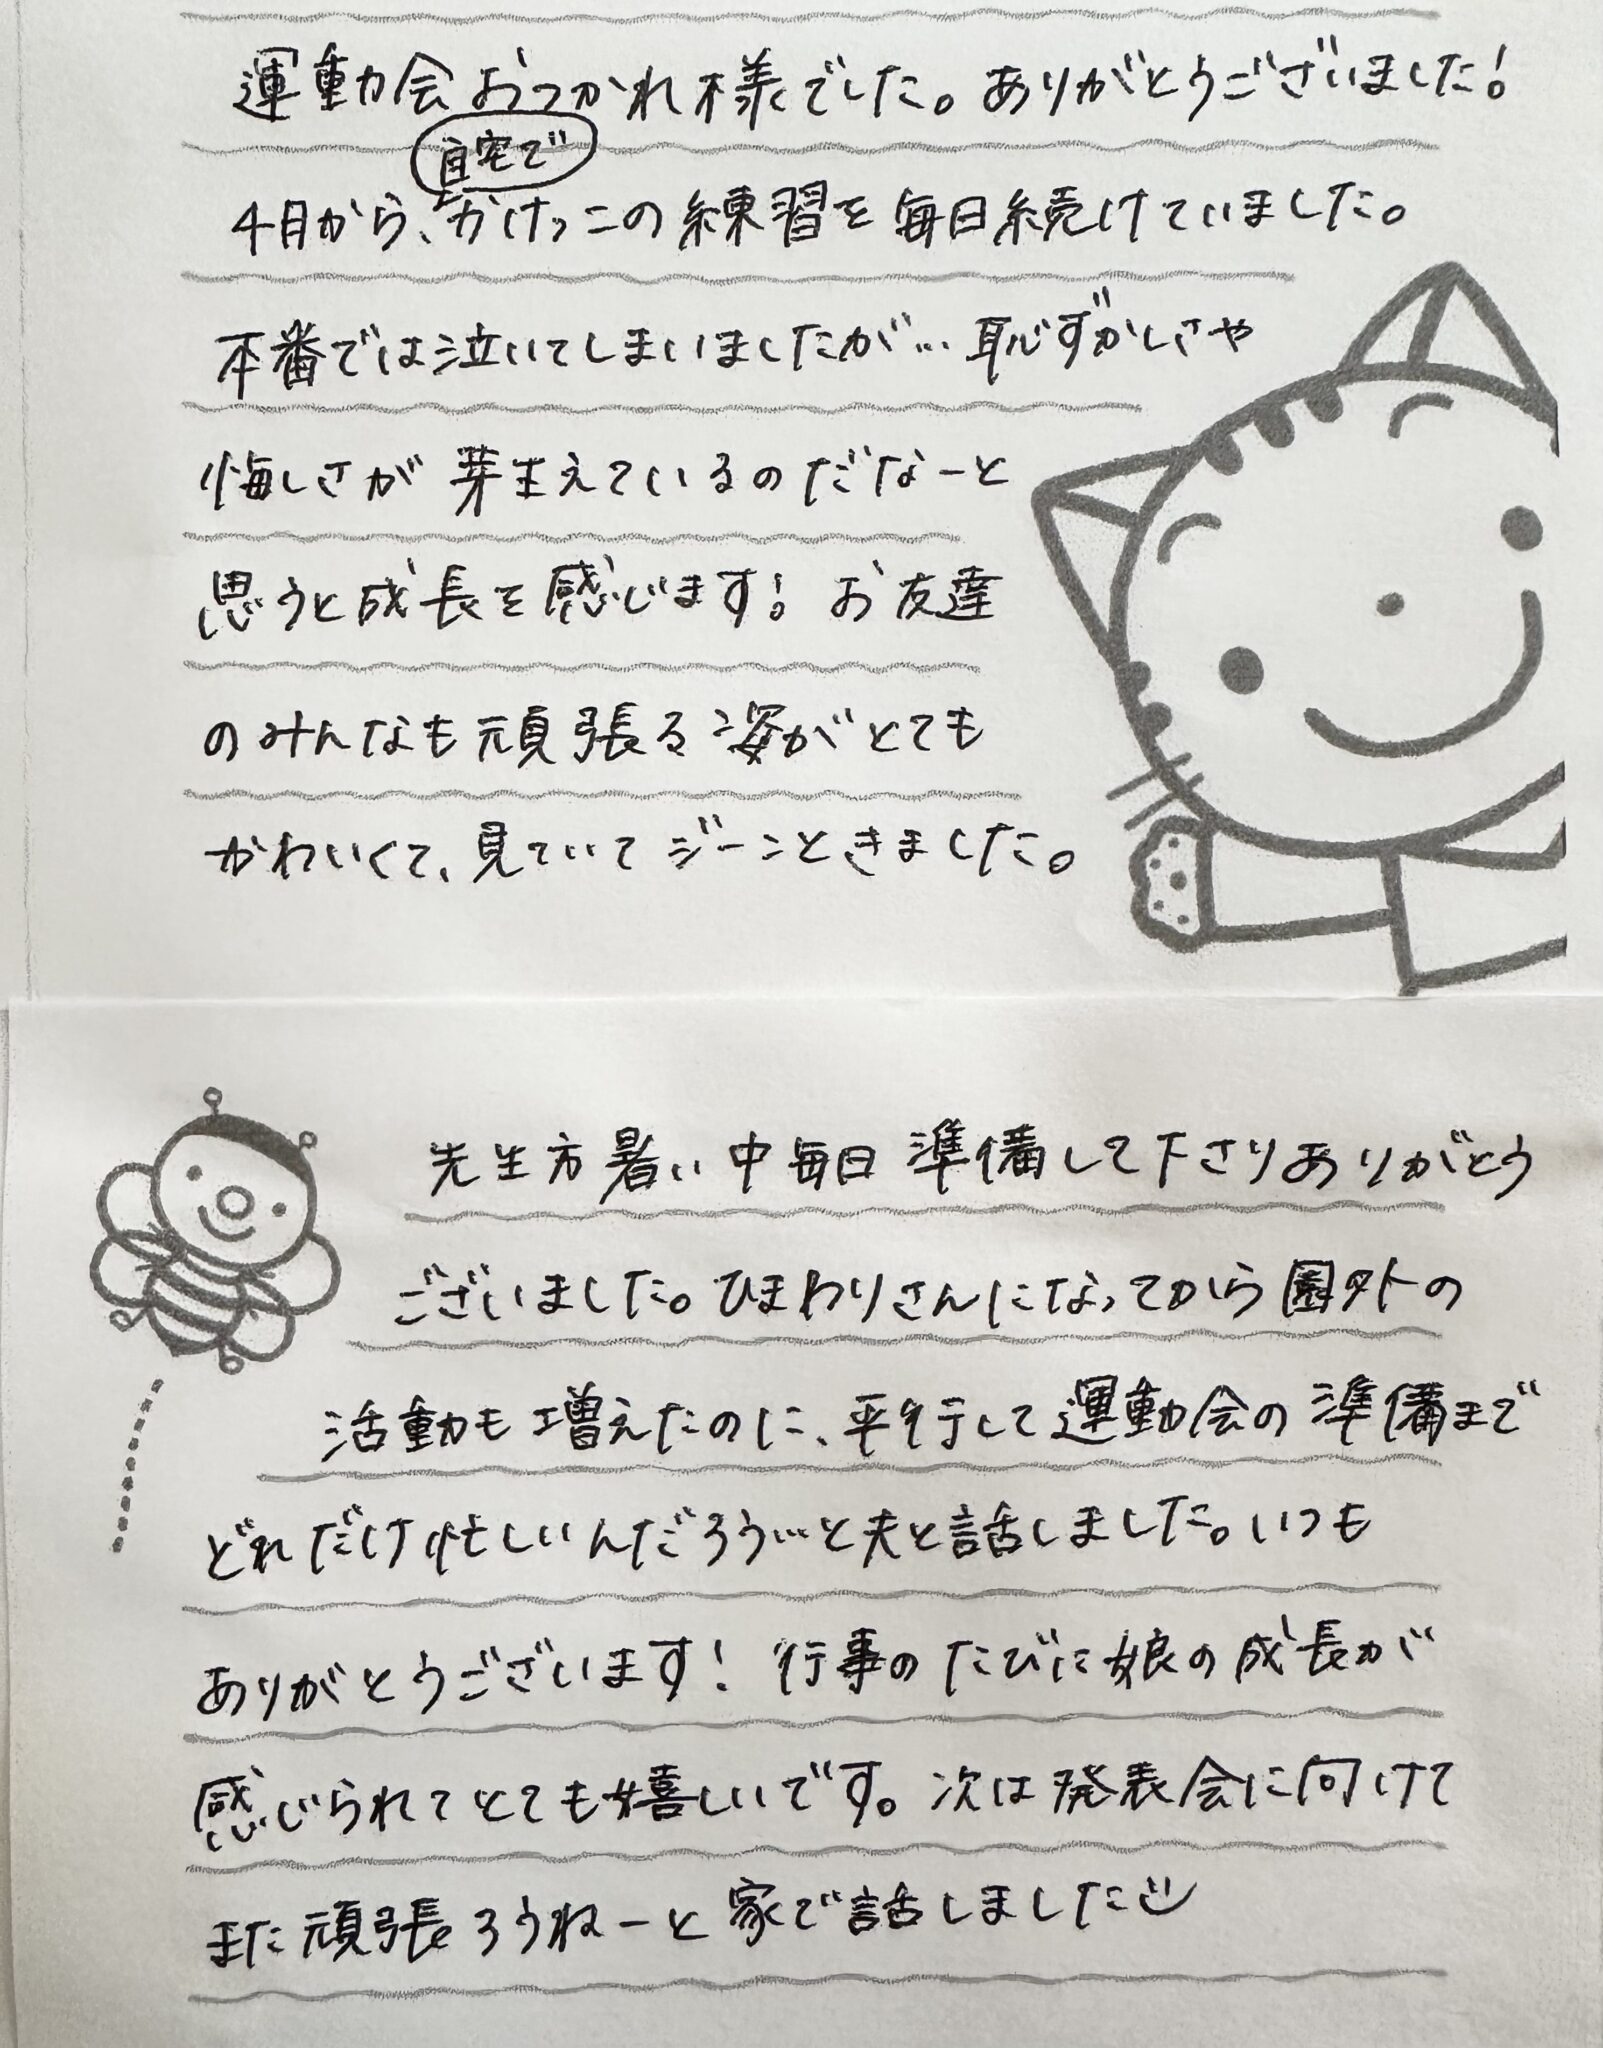 運動会おつかれ様でした。ありがとうございました!
自宅で
4月から、かけっこの練習を毎日続けていました。
本番では泣いてしまいましたが…恥ずかしさや
悔しさが芽生えているのだなーと
思うと成長を感じます!お友達
のみんなも頑張る姿がとても
かわいくて、見ていてジーンときました。
先生方暑い中毎日準備して下さりありがとう
ございました。ひまわりさんになってから園外の
活動も増えたのに、平行して運動会の準備まで
どれだけ忙しいんだろう…と夫と話しました。いつも
ありがとうございます!行事のたびに娘の成長が
感じられてとても嬉しいです。次は発表会に向けて
また頑張ろうねーと家で話しました